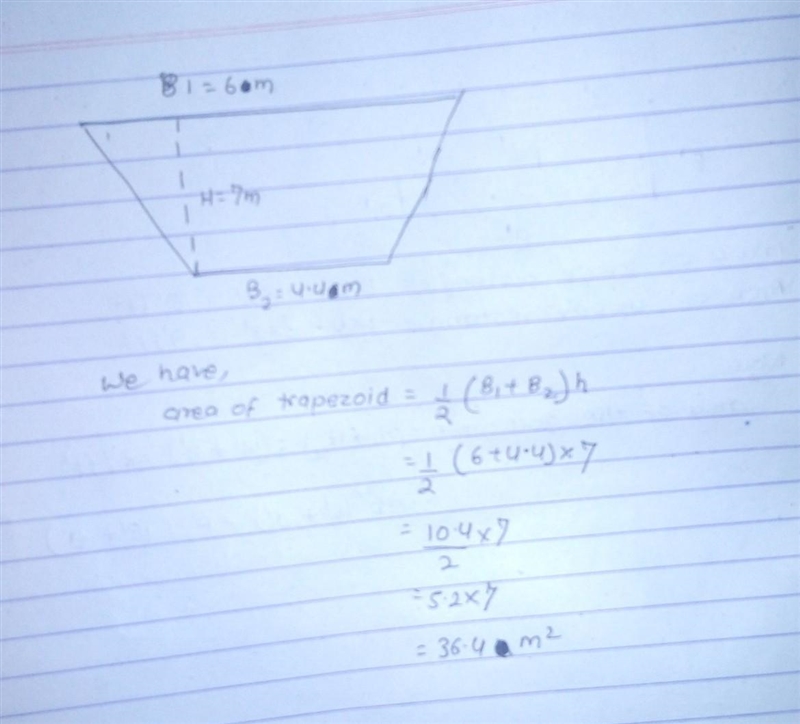 B1 = 6 m
H = 7m
B₂ = 4.4 m
We have,
area of trapezoid = 1/2 (B₁ + B₂) h
= 1/2 (6+4.4) × 7
= 10.4 × 7 / 2
= 5.2 × 7
= 36.4 m²